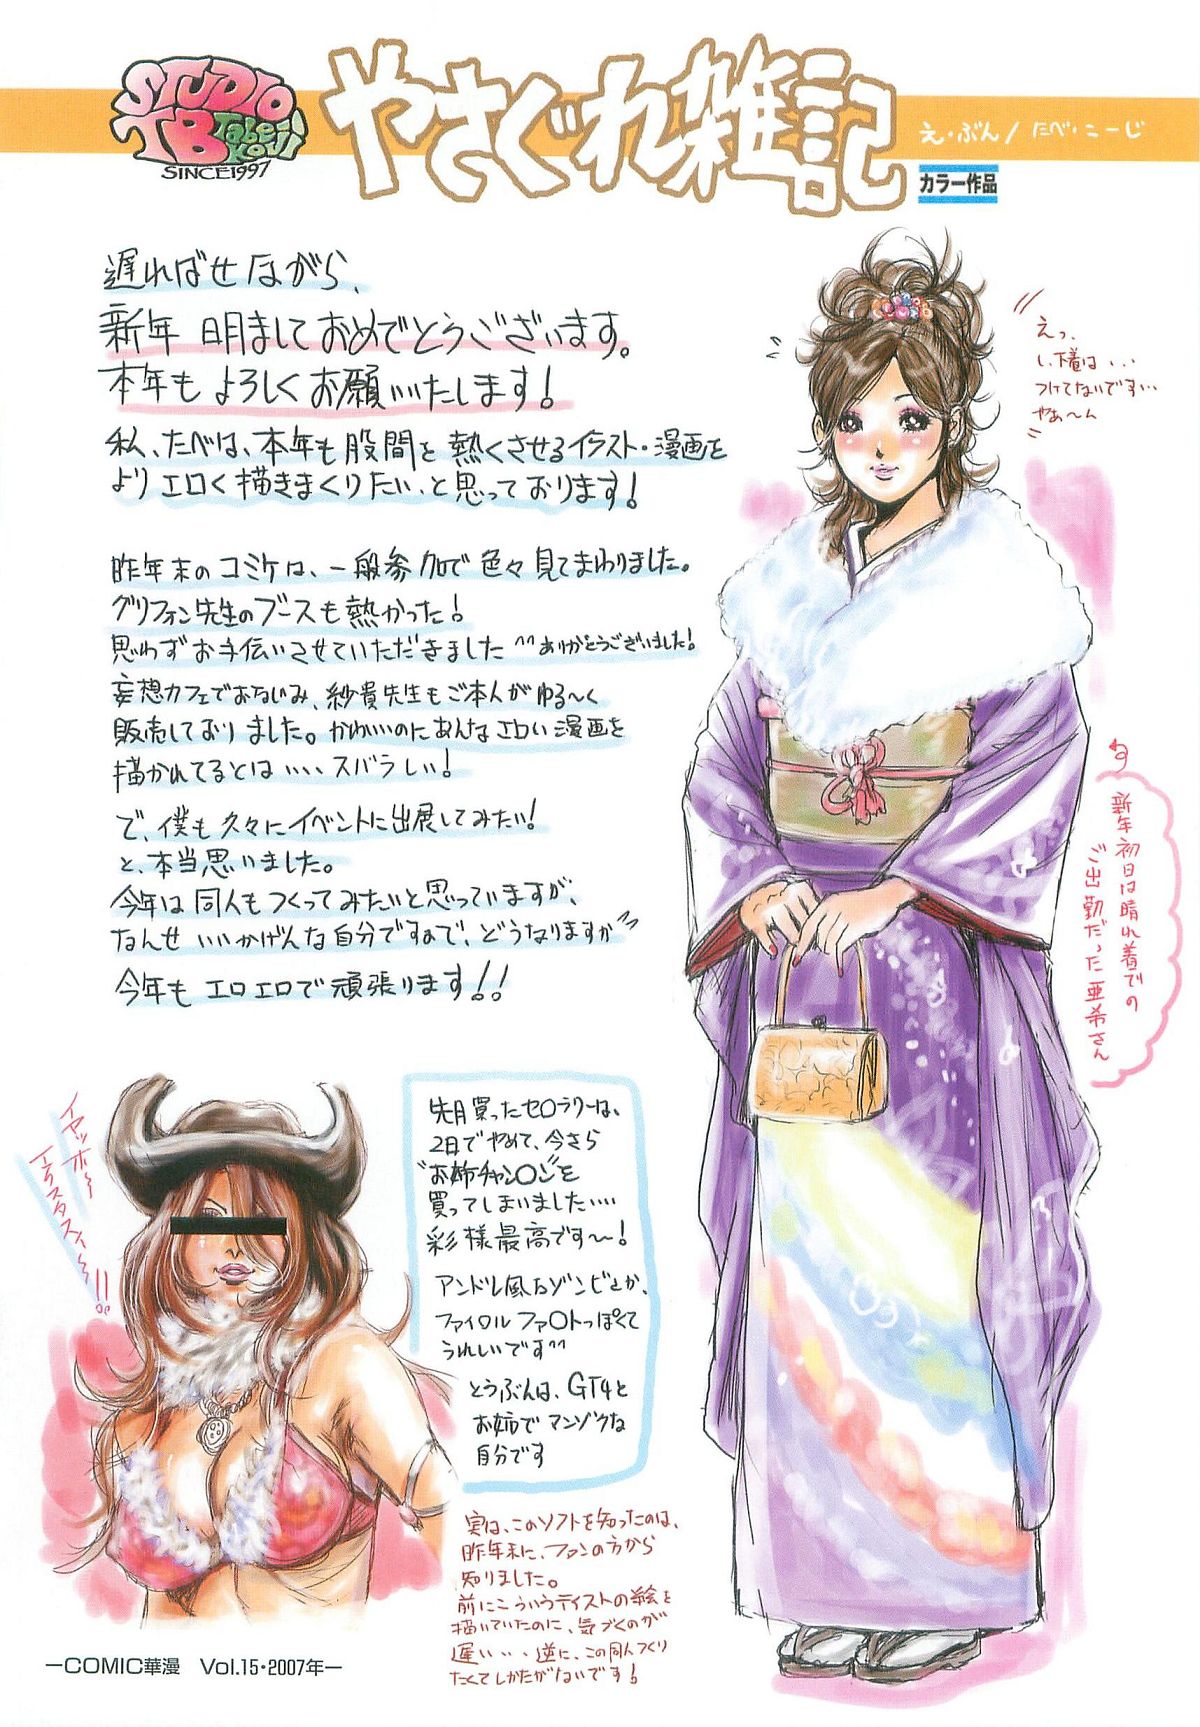 STUDIO
TB Tabe Koji
SINCE1997
やさぐれ雑記
え・ぶん/たべ・こーじ
カラー作品
遅ればせながら、
新年 明ましておめでとうございます。
本年もよろしくお願いいたします!
私、たべは、本年も股間を熱くさせるイラスト・漫画を
よりエロく描きまくりたい、と思っております!
昨年末のコミケは、一般参加で色々見てまわりました。
グリフォン先生のブースも熱かった!
思わずお手伝いさせていただきました^^ありがとうございました!
妄想カフェでおなじみ、紗貴先生もご本人がゆる〜く
販売しておりました。かわいいのにあんなエロい漫画を
描かれてるとは・・・、スバラしい!
で、僕も久々にイベントに出展してみたい!
と、本当思いました。
今年は同人もつくってみたいと思っていますが、
なんせいいかげんな自分ですので、どうなりますか
今年もエロエロで頑張ります!!
えっ、
し、下着は・・・
つけてないです・・・
やぁ〜ん
新年初日は晴れ着での
ご出勤だった亜希さん
イヤッホ〜
エクスタスィ〜!!
先月買ったセ○ラリーは、
2日でやめて、今さら
"お姉チャン○ラ"を
買ってしまいました・・・
彩様最高です〜!
アンドレ風なゾンビとか、
ファイ○ル ファ○トっぽくて
うれしいです^^
とうぶんは、GT4と
お姉でマンゾクな
自分です
実は、このソフトを知ったのは、
昨年末に、ファンの方から
知りました。
前にこういうテイストの絵を
描いていたのに、気づくのが
遅い・・・逆に、この同人つくり
たくてしかたがないです!
ーCOMIC華漫 Vol.15・2007年ー